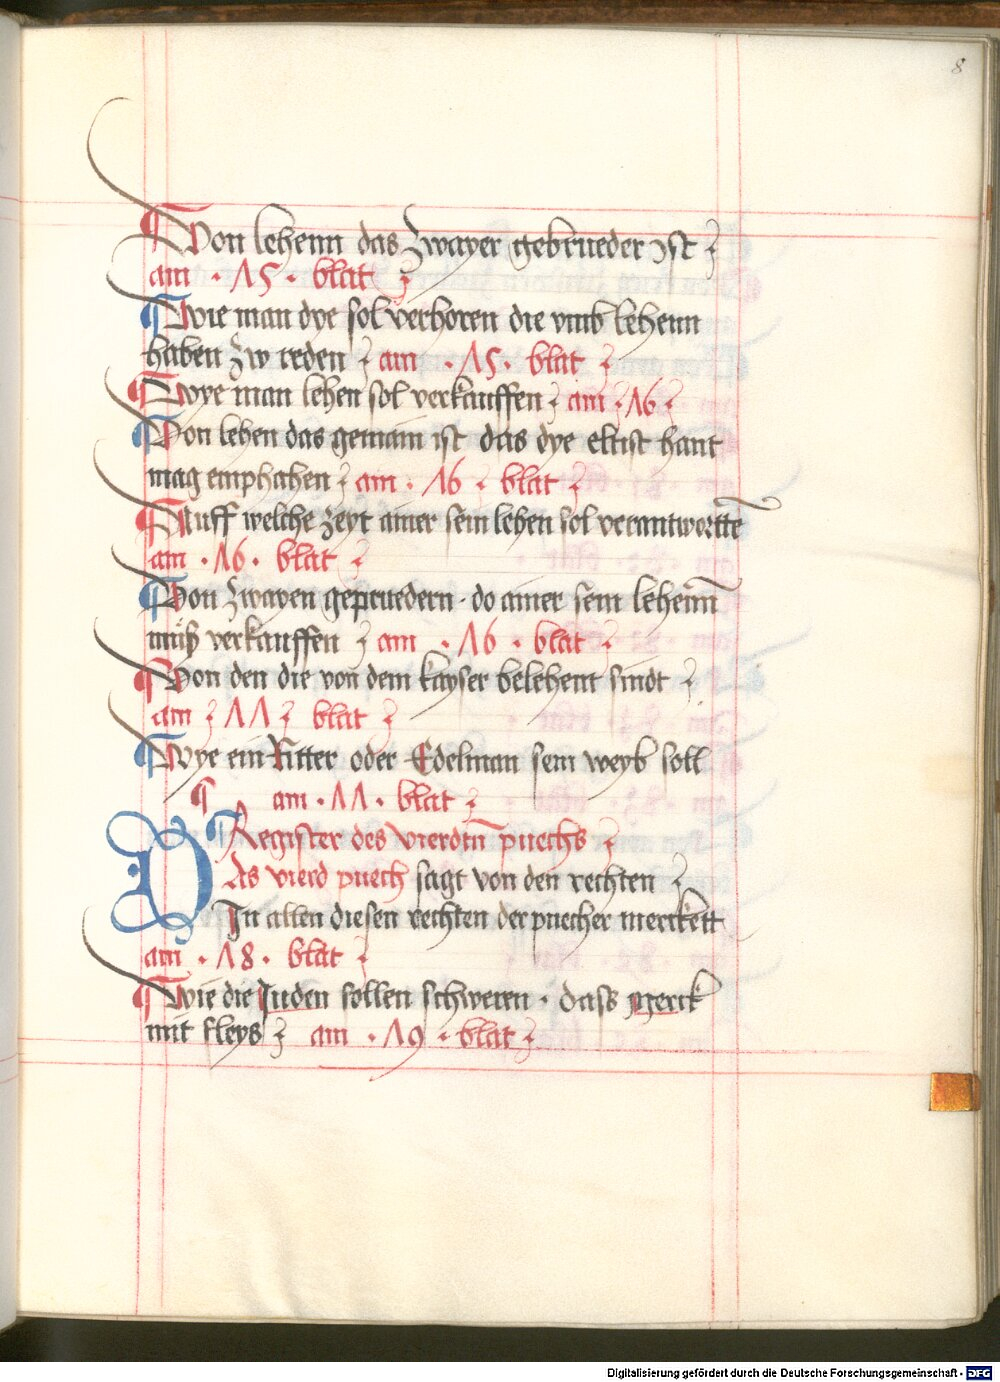 8
¶ Von lehenn das zwayer gebrueder ist
am · 15 · blat
¶ Wie man dye sol verhoren die vmb lehenn
haben zw reden am · 15 · blat
¶ Wye man lehen sol verkauffen am 16
¶ Von lehen das gemain ist das dye eltist hant
mag emphahen am · 16 · blat
¶ Auff welche zeyt ainer sein lehen sol verantwortte
am · 16 · blat
¶ Von zwayen gepruedern · do ainer sein lehenn
muß verkauffen am · 16 · blat
¶ Von den die von dem kayser belehent sindt
am 11 blat
¶ Wye ein Ritter oder Edelman sein weyb soll
¶ am · 11 · blat
¶ Register des vierdtn puechs
DAs vierd puech sagt von den rechten
In allen diesen rechten der puecher merckett
am · 18 · blat
¶ Wie die Juden sollen schweren · dass merck
mit fleys am · 19 · blat
Digitalisierung gefördert durch die Deutsche Forschungsgemeinschaft - DFG